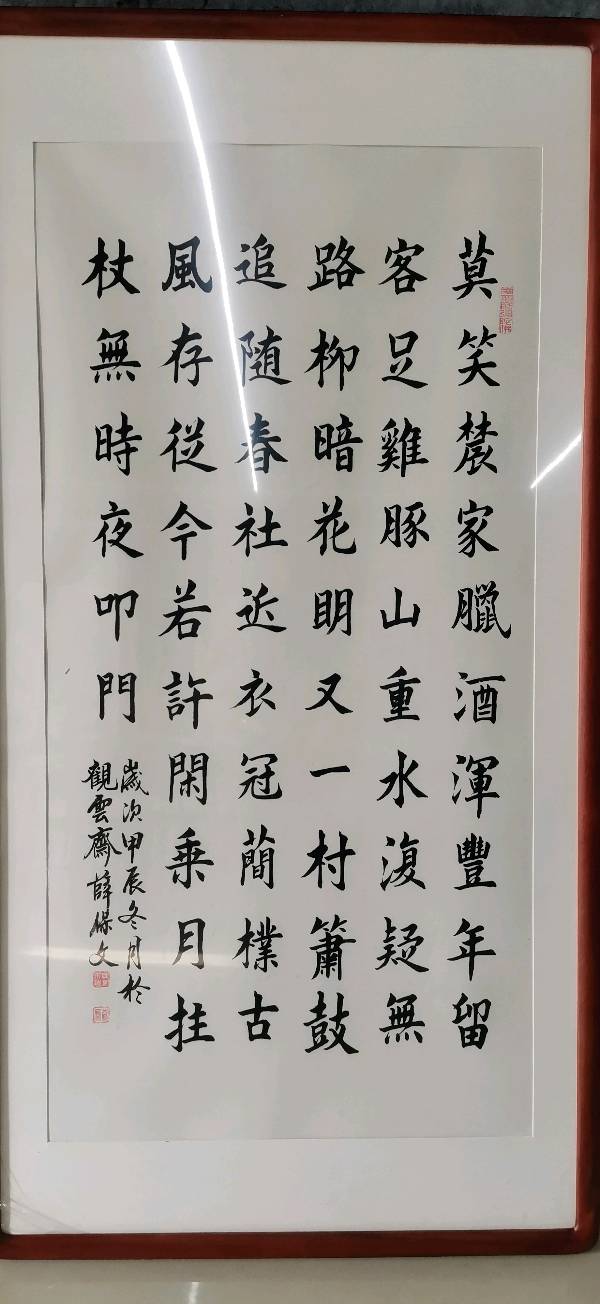 莫笑農家臘酒渾豐年留
客足雞豚山重水復疑無
路柳暗花明又一村簫鼓
追隨春社近衣冠蕳樸古
風存從今若許閑乗月拄
杖無時夜叩門
歲次甲辰冬月於
觀雲齋薛保文